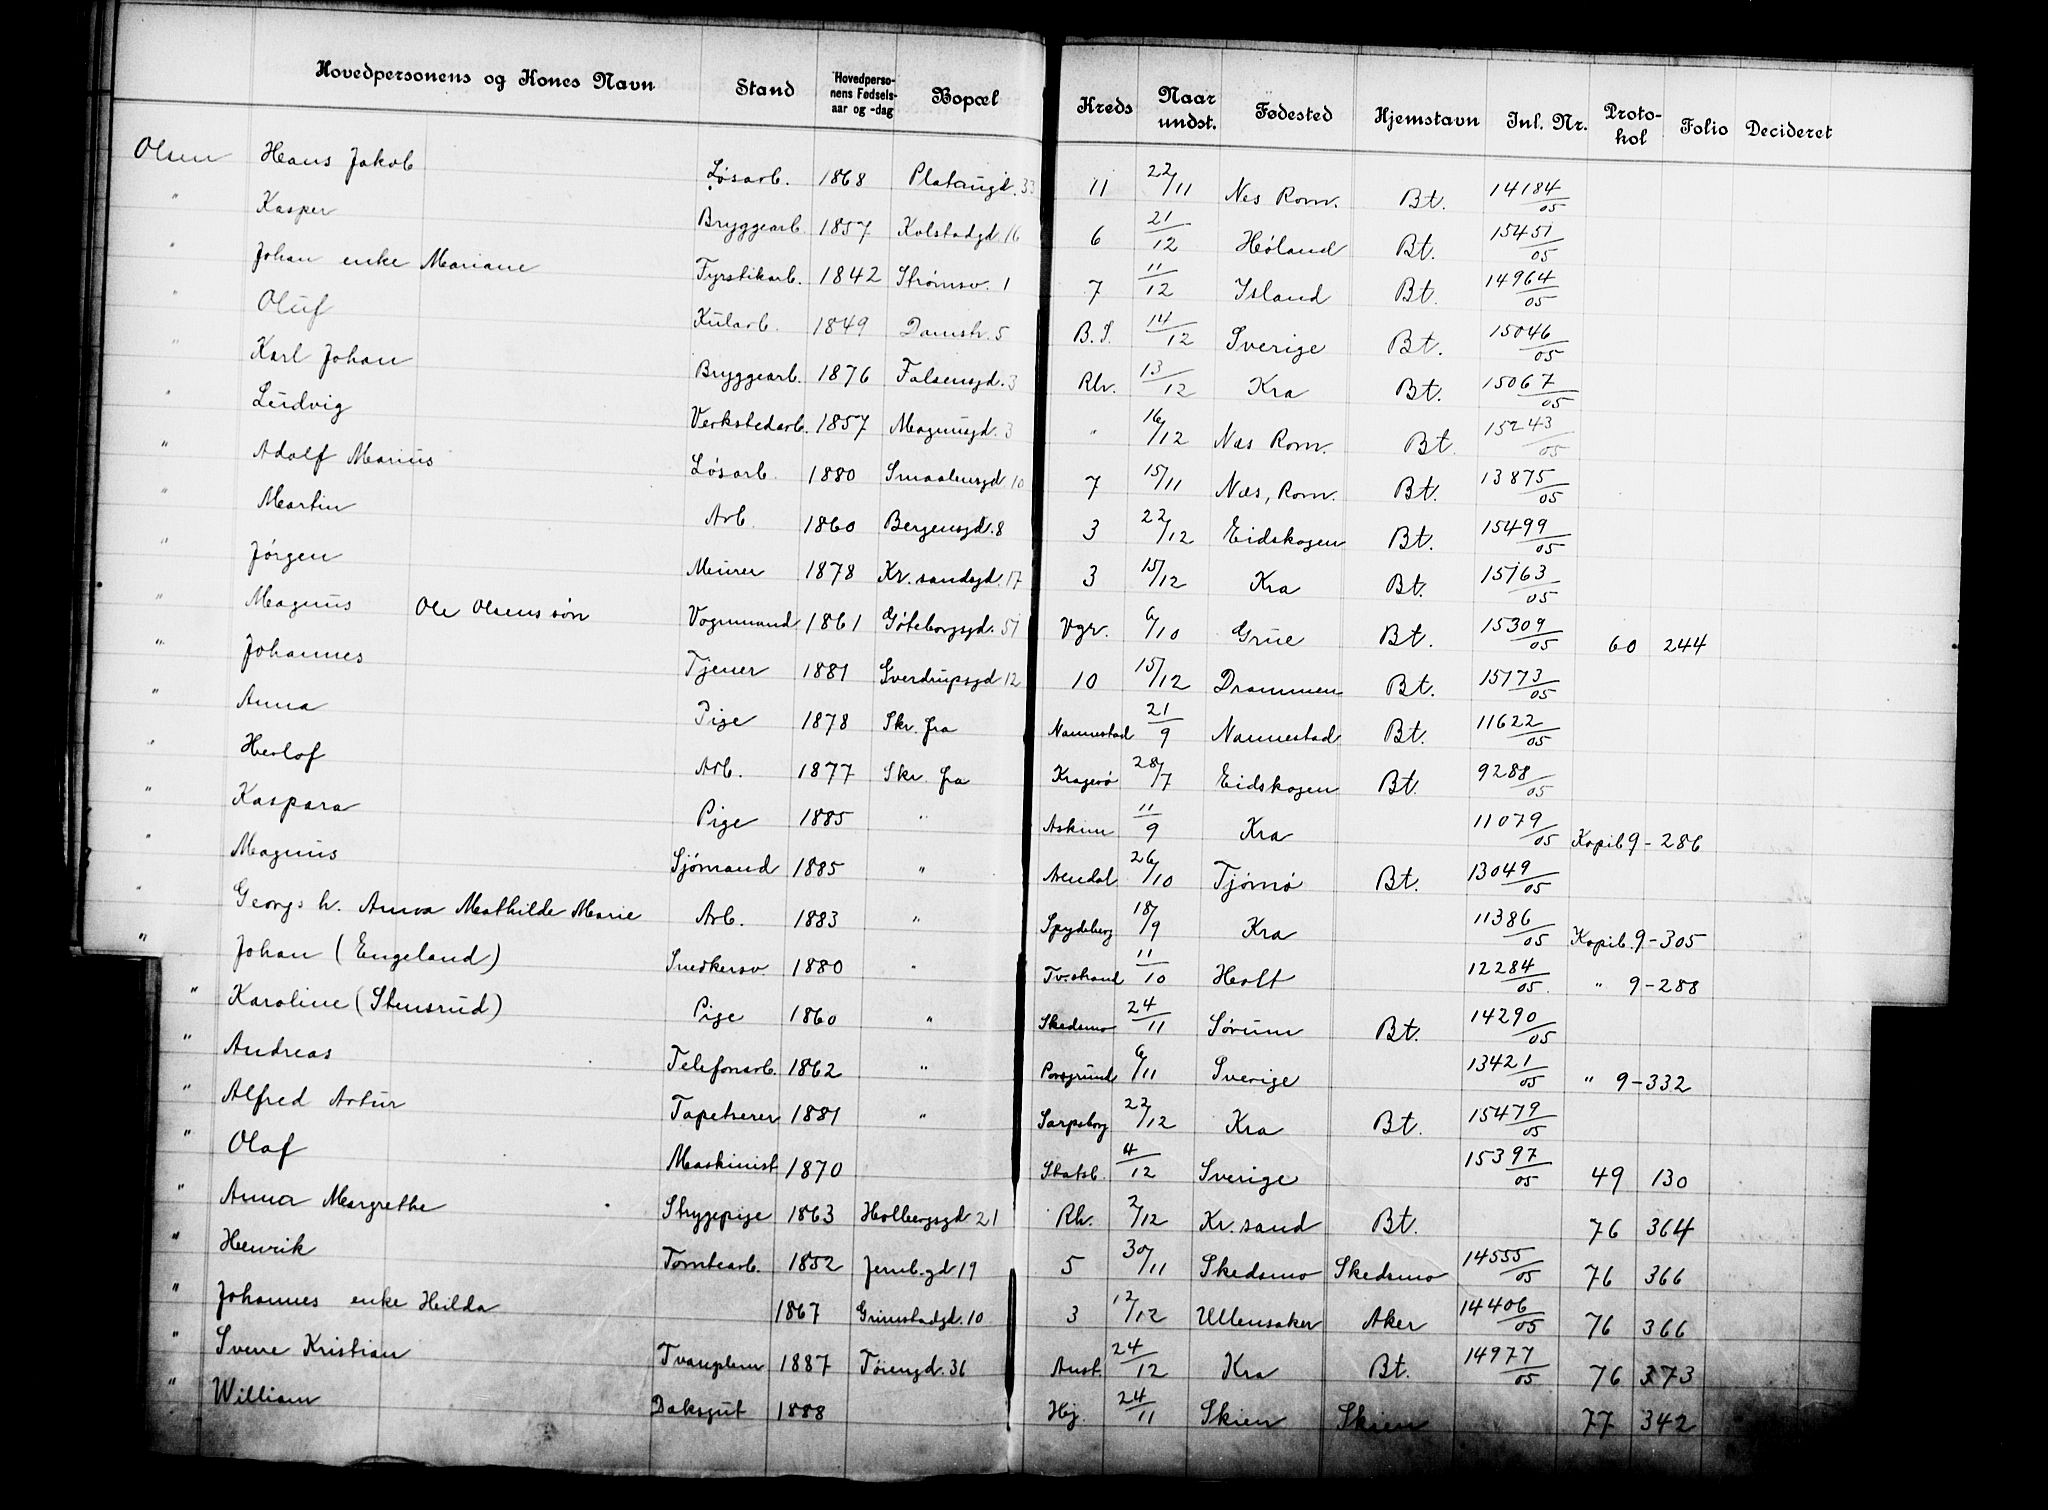 Hovedpersonens og Kones Navn Stand Hovedpersonens Fødselsaar og -dag Bopæl Kreds Naar undst. Fødested Hjemstavn Inl. Nr. Protokol Folio Decideret
Olsen Hans Jakob Løsarb. 1868 Platougd. 33 11 22/11 Nes Rom. Bt. 14184/05
" Kasper Bryggearb. 1857 Kolstadgd. 16 6 21/12 Høland Bt. 15451/05
" Johan enke Mariane Fyrstikarb. 1842 Strømsv. 1 7 11/12 Island Bt. 14964/05
" Oluf Kularb. 1849 Damstr. 5 B.S. 14/12 Sverige Bt. 15046/05
" Karl Johan Bryggearb. 1876 Falsensgd. 3 Rh. 13/12 Kra Bt. 15067/05
" Ludvig Verkstedarb. 1857 Magnusgd. 3 " 16/12 Næs Rom. Bt 15243/05
" Adolf Marius Løsarb. 1880 Smaalensgd 10 7 15/11 Næs, Rom. Bt. 13875/05
" Martin Arb. 1860 Bergensgd. 8 3 22/12 Eidskogen Bt. 15499/05
" Jørgen Murer 1878 Kr.sandsgd. 17 3 15/12 Kra Bt. 15163/05
" Magnus Ole Olsens søn Vognmand 1861 Göteborgsgd. 51 Vgr. 6/10 Grue Bt. 15309/05 60 244
" Johannes Tjener 1881 Sverdrupsgd 12 10 15/12 Drammen Bt. 15173/05
" Anna Pige 1878 Skr. fra Nannestad 21/9 Nannestad Bt. 11622/05
" Herlof Arb. 1877 Skr. fra Kragerø 28/7 Eidskogen Bt. 9288/05
" Kaspara Pige 1885 " Askim 11/9 Kra 11079/05 Kopib 9-286
" Magnus Sjömand 1885 " Arendal 26/10 Tjømø Bt. 13049/05
" Georgs h. Anna Mathilde Marie Arb. 1883 " Spydeberg 18/9 Kra 11386/05 Kopib. 9-305
" Johan (Engeland) Snedkersv 1880 " Tv.strand 11/10 Holt 12284/05. " 9-288
" Karoline (Stensrud) Pige 1860 " Skedsmo 24/11 Sørum Bt. 14290/05
" Andreas Telefonarb. 1862 " Porsgrund 6/11 Sverige 13421/05 " 9-332
" Alfred Artur Tapetserer 1881 " Sarpsborg 22/12 Kra Bt. 15479/05
" Olaf Maskinist 1870 Statsb. 4/12 Sverige 15397/05 49 130
" Anna Margrethe Strygepige 1863 Holbergsgd 21 Rh. 2/12 Kr.sand Bt. 76 364
" Henrik Tomtearb. 1852 Jernb.gd 19 5 30/11 Skedsmo Skedsmo 14555/05 76 366
" Johannes enke Hilda 1867 Grimstadgd. 10 3 12/12 Ullensaker Aker 14406/05 76 366
" Svene Kristian 1887 Töiengd. 36 Anst. 24/12 Kra Bt. 14977/05 76 373
" William Daksgut 1888 Hj. 24/11 Skien Skien 77 342